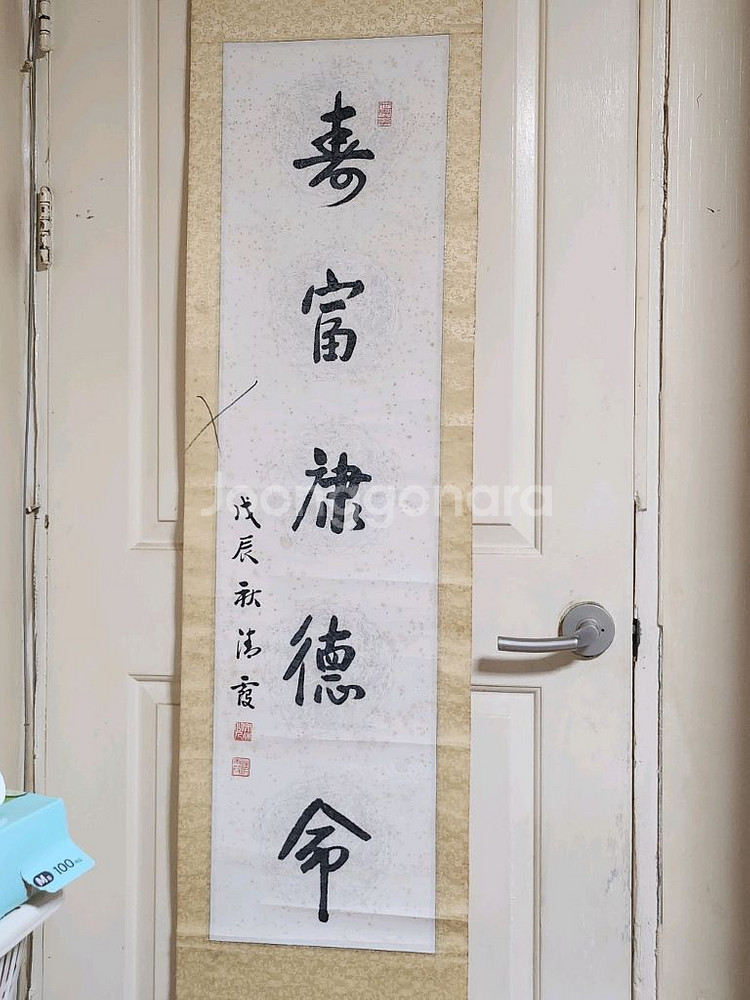 壽富康德命
戊辰秋淸霞
Joonggonara
M 100